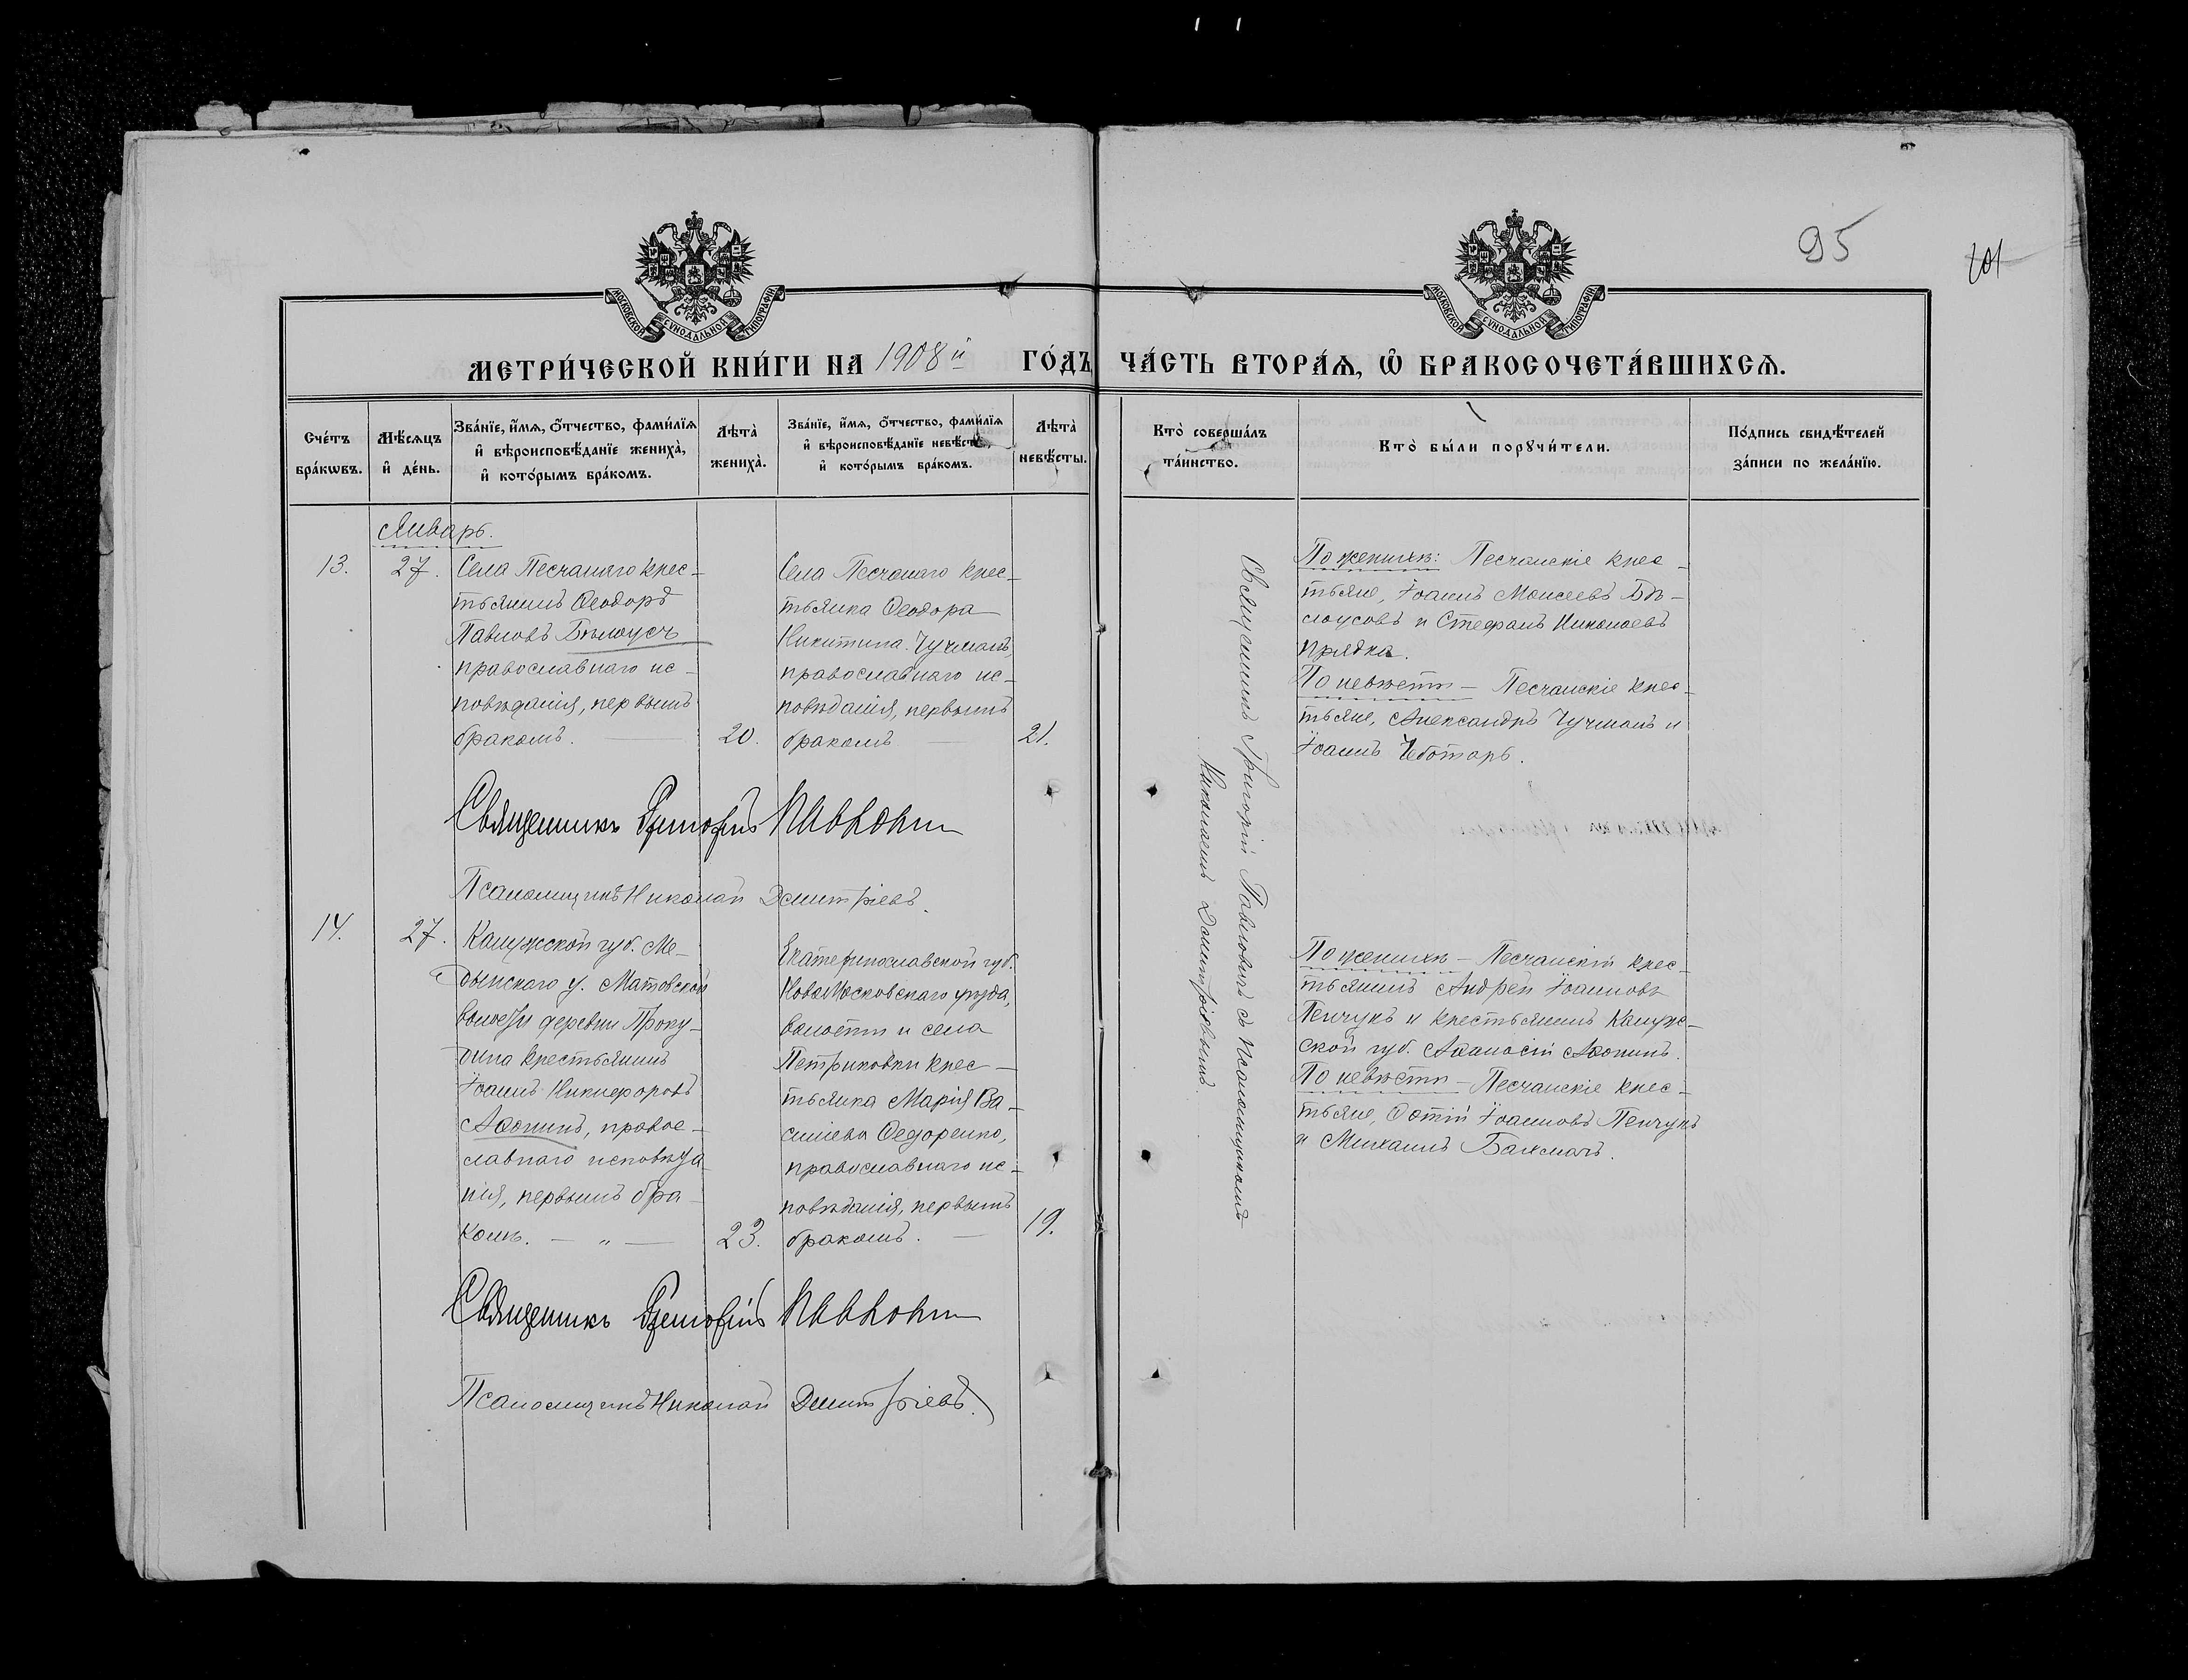 95
101
МОСКОВСКОЙ СУНОДАЛЬНОЙ ТИПОГРАФІИ
МОСКОВСКОЙ СУНОДАЛЬНОЙ ТИПОГРАФІИ
МЕТРИ́ЧЕСКОЙ КНИ́ГИ НА 1908 й ГО́ДЪ ЧА́СТЬ ВТОРА́Ѧ, Ѽ БРАКОСОЧЕТА́ВШИХСѦ.
Сче́тъ
бра́кѡвъ.
Мѣ́сѧцъ
и҆ де́нь.
Зва́нїе, и҆́мѧ, ѻ҆́тчество, фами́лїѧ
и҆ вѣроисповѣ́данїе жениха̀,
и҆ кото́рымъ бра́комъ.
Лѣта̀
жениха̀.
Зва́нїе, и҆́мѧ, ѻ҆́тчество, фами́лїѧ
и҆ вѣроисповѣ́данїе невѣ́сты,
и҆ кото́рымъ бра́комъ.
Лѣта̀
невѣ́сты.
Кто̀ соверша́лъ
та́инство.
Кто̀ бы́ли порꙋчи́тели.
По́дпись свидѣ́телей
за́писи по жела́нїю.
Январь.
13.
27.
Села Песчанаго крес-
тьянинъ Ѳеодоръ
Павловъ Бѣлоусъ
православнаго ис-
повѣданія, первымъ
бракомъ.
20.
Села Песчанаго крес-
тьянка Ѳеодора
Никитина Чучманъ,
православнаго ис-
повѣданія, первымъ
бракомъ
21.
Священникъ Григорій Павловичъ съ псаломщикомъ
Николаемъ Дмитріевымъ.
По женихѣ: Песчанскіе крес-
тьяне, Іоаннъ Моисеевъ Бѣ-
лоусовъ и Стефанъ Николаевъ
Прядка.
По невѣстѣ - Песчанскіе крес-
тьяне, Александръ Чучманъ и
Іоаннъ Чеботарь.
Священникъ Григорій Павловичъ
Псаломщикъ Николай Дмитріевъ.
14.
27.
Калужской губ. Ме-
дынскаго у. Матовской
волости деревни Проку-
дина крестьянинъ
Іоаннъ Никифоровъ
Аѳонинъ, правос-
лавнаго исповѣда-
нія, первымъ бра-
комъ. — „ —
23.
Екатеринославской губ.
Новомосковскаго уѣзда,
волости и села
Петриковки крес-
тьянка Марія Ва-
сильева Ѳедоренко,
православнаго ис-
повѣданія, первымъ
бракомъ.
19.
По женихѣ - Песчанскій крес-
тьянинъ Андрей Іоанновъ
Пенчукъ и крестьянинъ Калуж-
ской губ. Аѳанасій Аѳонинъ.
По невѣстѣ - Песчанскіе крес-
тьяне, Фотій Іоанновъ Пенчукъ
и Михаилъ Бахмачъ.
Священникъ Григорій Павловичъ
Псаломщикъ Николай Дмитріевъ.